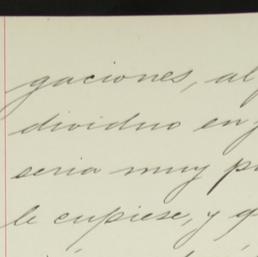 gaciones, al
dividuo en
seria muy
le cupiese, y